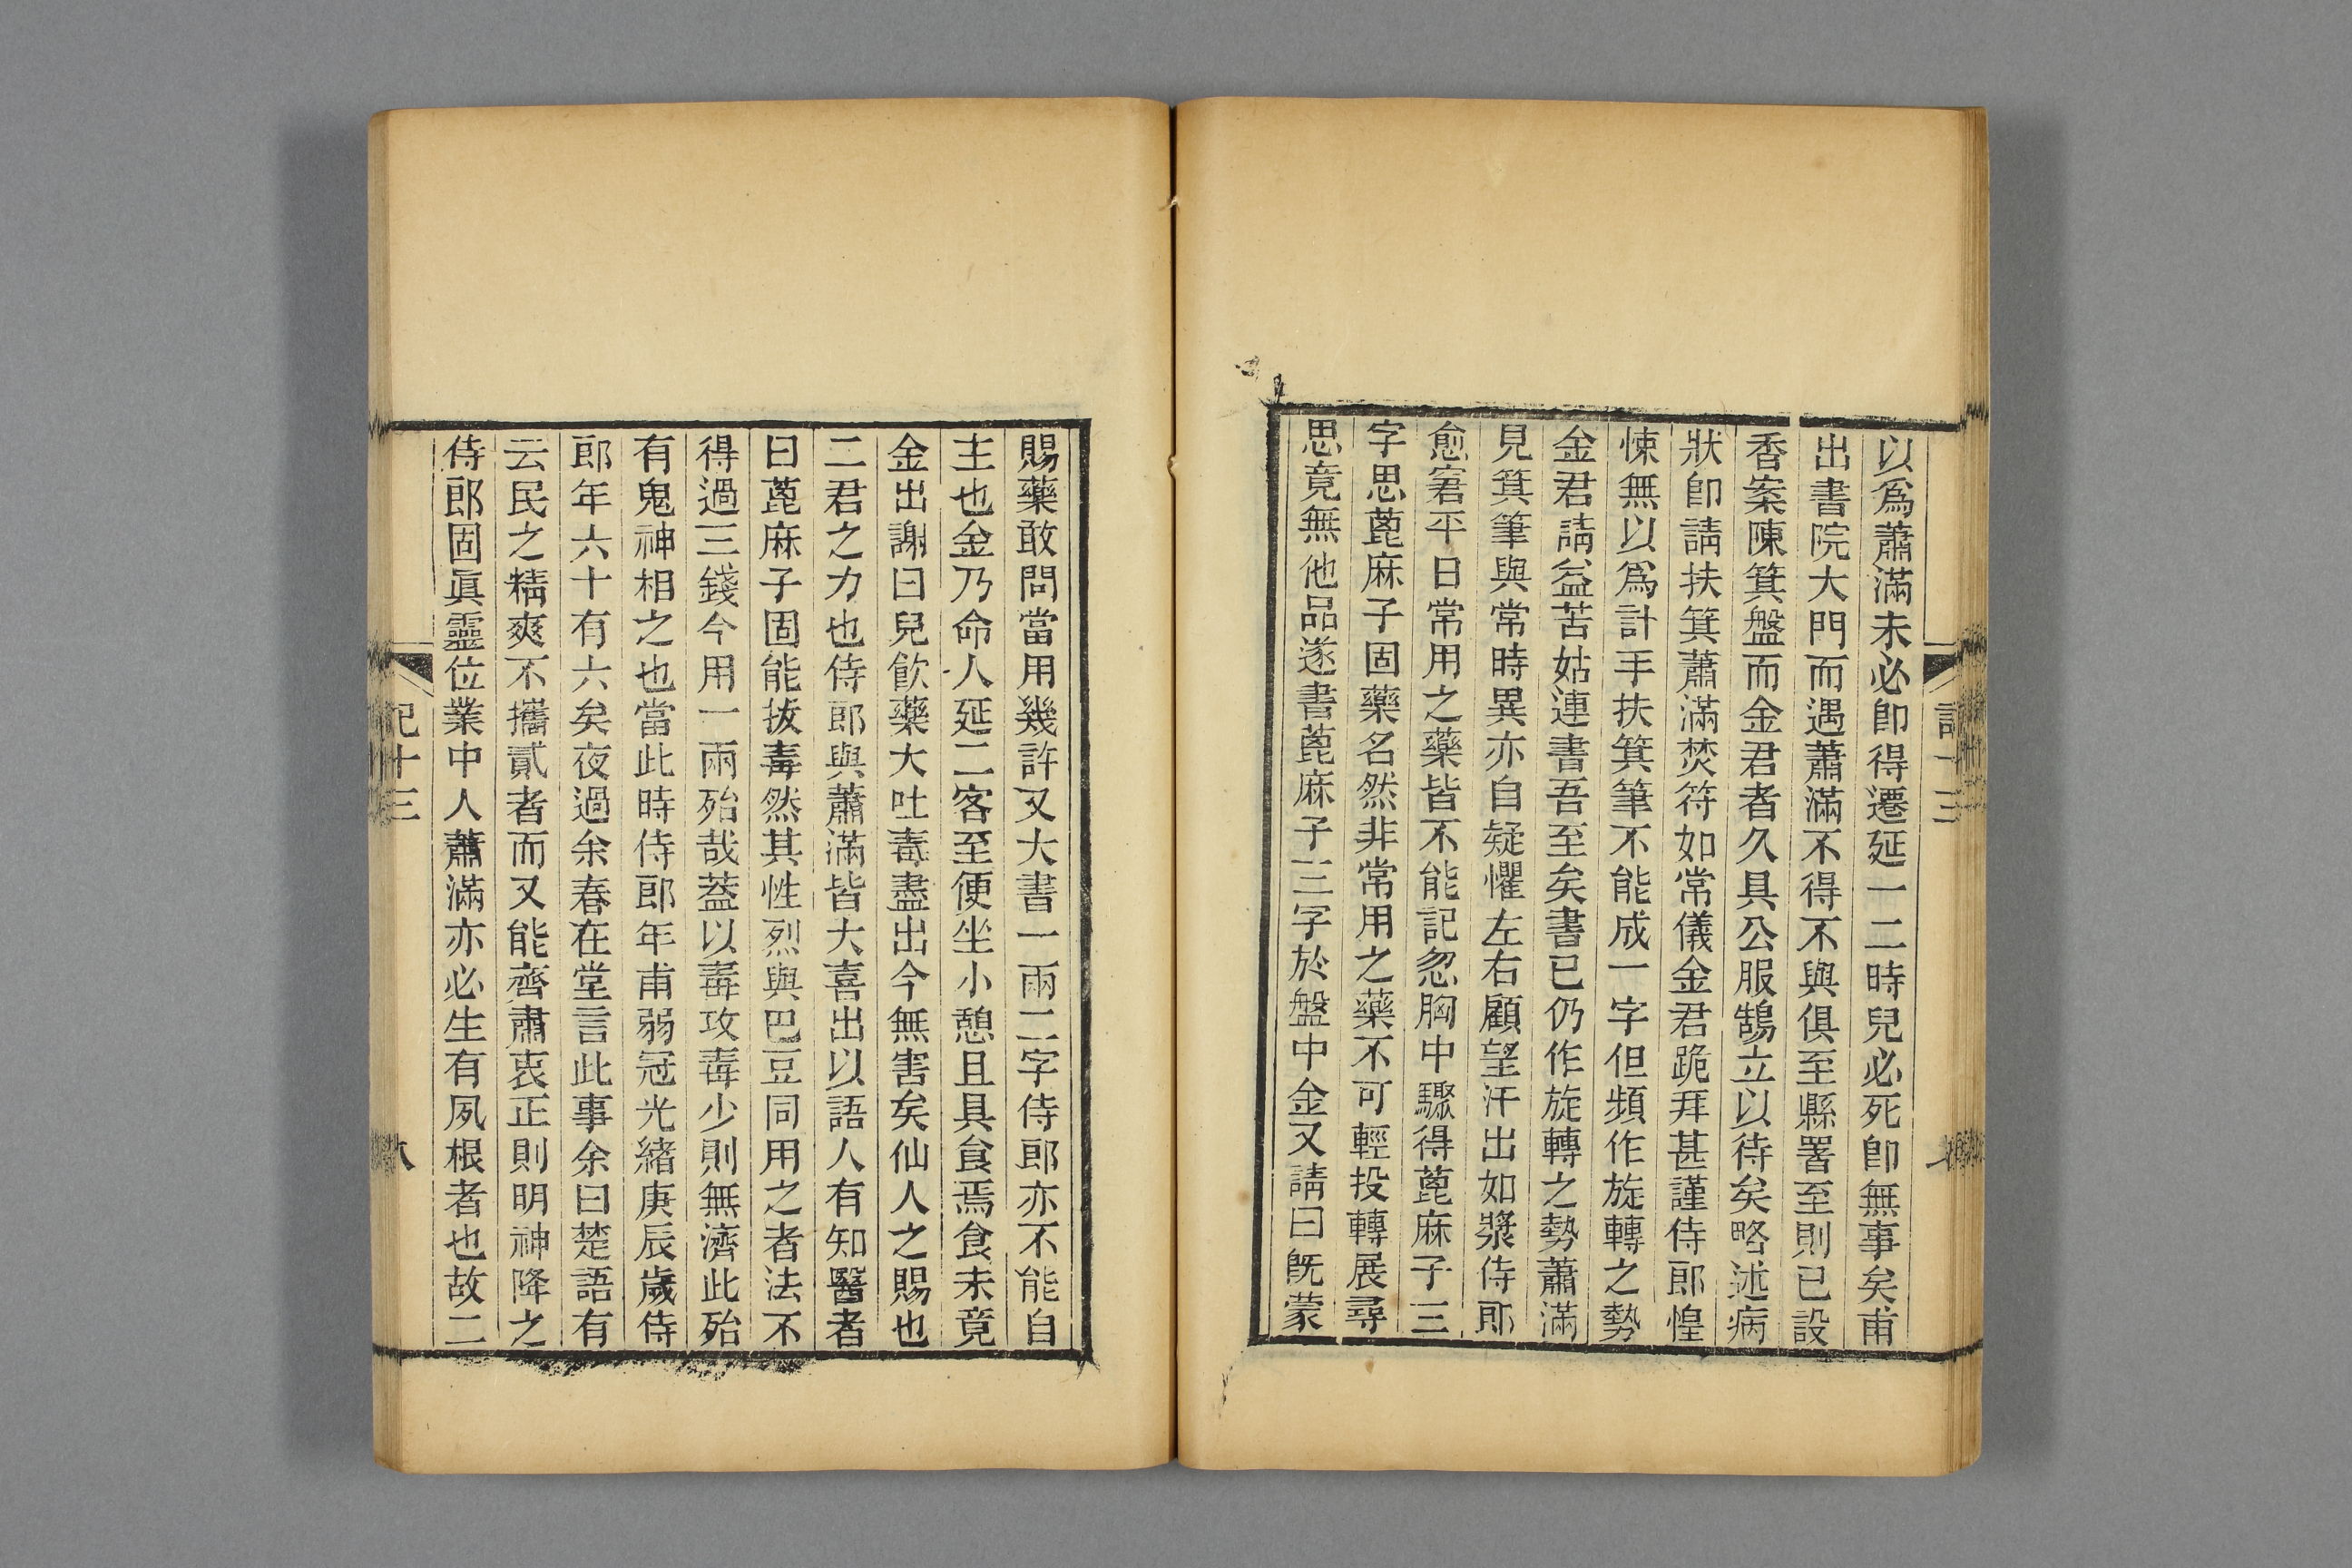 以爲蕭滿未必卽得遷延一二時兒必死卽無事矣甫
出書院大門而遇蕭滿不得不與俱至縣署至則已設
香案陳箕盤而金君者久具公服鵠立以待矣略述病
狀卽請扶箕蕭滿焚符如常儀金君跪拜甚謹侍郎惶
悚無以爲計手扶箕筆不能成一字但頻作旋轉之勢
金君請益苦姑連書吾至矣書已仍作旋轉之勢蕭滿
見箕筆與常時異亦自疑懼左右顧望汗出如漿侍郎
愈窘平日常用之藥皆不能記忽胸中驟得蓖麻子三
字思蓖麻子固藥名然非常用之藥不可輕投轉展尋
思竟無他品遂書蓖麻子三字於盤中金又請曰旣蒙
賜藥敢問當用幾許又大書一兩二字侍郎亦不能自
主也金乃命人延二客至便坐小憩且具食焉食未竟
金出謝曰兒飮藥大吐毒盡出今無害矣仙人之賜也
二君之力也侍郎與蕭滿皆大喜出以語人有知醫者
曰蓖麻子固能拔毒然其性烈與巴豆同用之者法不
得過三錢今用一兩殆哉葢以毒攻毒少則無濟此殆
有鬼神相之也當此時侍郎年甫弱冠光緒庚辰歲侍
郎年六十有六矣夜過余春在堂言此事余曰楚語有
云民之精爽不攜貳者而又能齊肅衷正則明神降之
侍郎固眞靈位業中人蕭滿亦必生有夙根者也故二
記十三
八